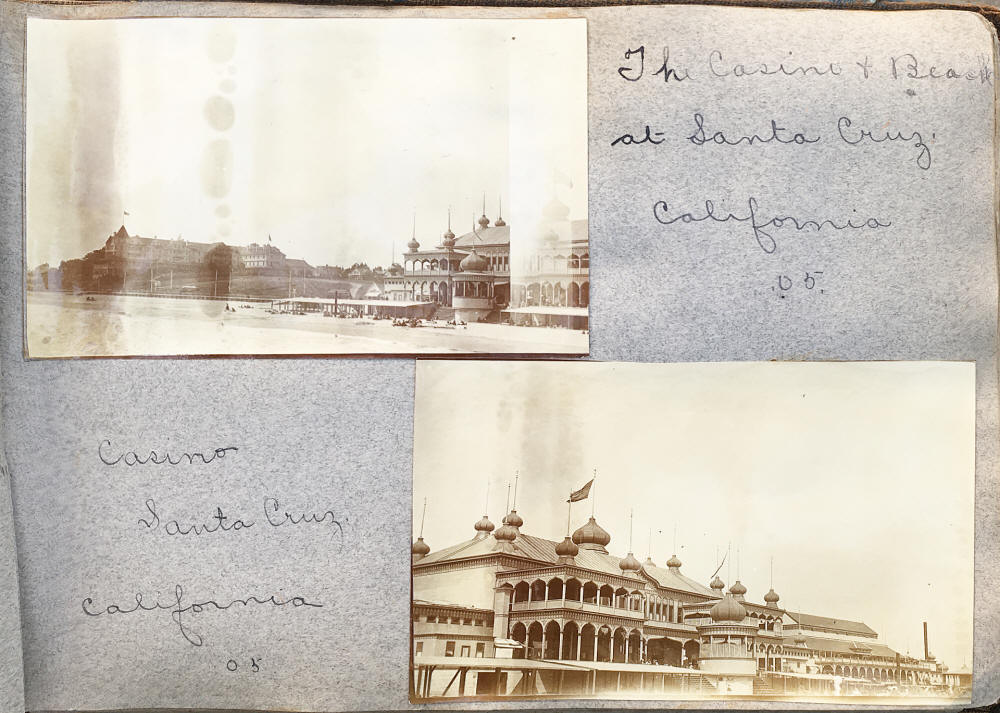 The Casino & Beach
at Santa Cruz.
California
.05.
Casino
Santa Cruz.
California
05